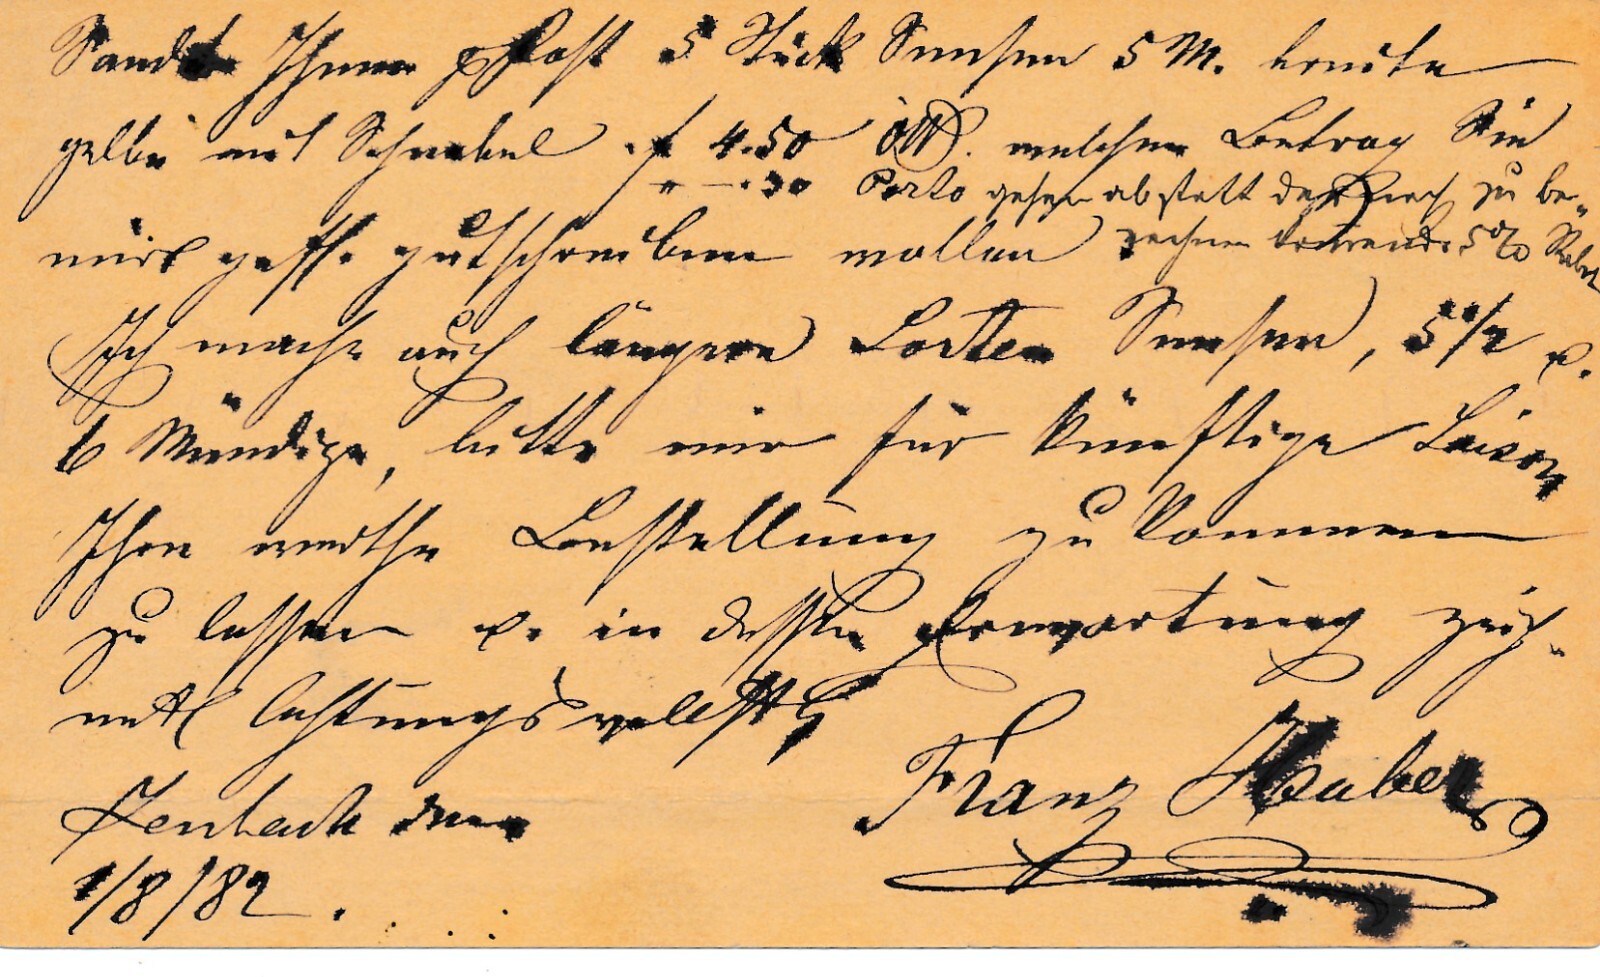 Sandte Ihnen p Post 5 Stück Sensen 5 M. breite
gelbe mit Schnabel f 4.50 öW. welchen Betrag Sie
" —.30 Porto gehen ab statt zu be-
mir gefl. gutschreiben wollen rechnen 5% Rabat
Ich mache auch längere Sorten Sensen, 5 1/2 u.
6 Mündige, bitte mir für künftige Saison
Ihre werthe Bestellung zukommen
zu lassen u. in dessen Erwartung zeich-
net achtungsvollst
Franz Huber
Jenbach den
1/8/82.